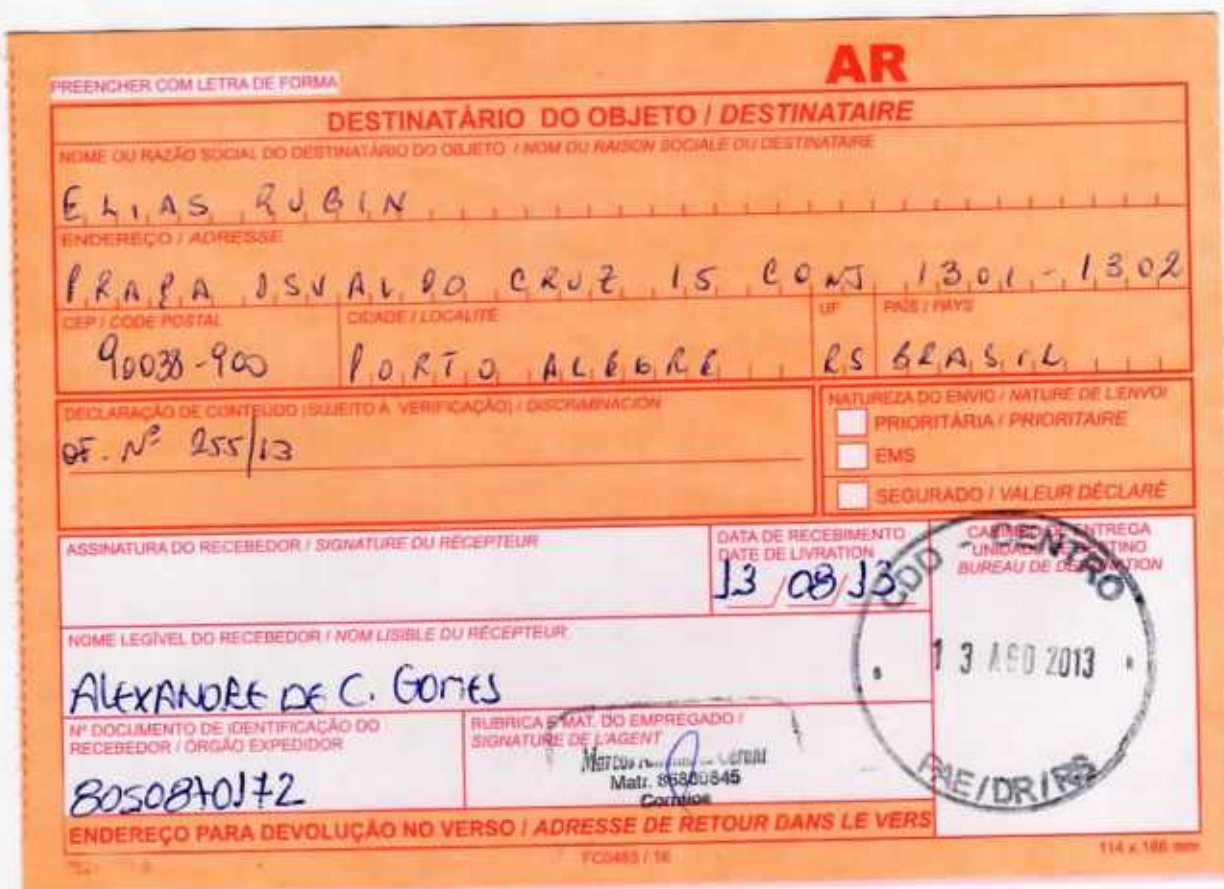 AR
PREENCHER COM LETRA DE FORMA
DESTINATÁRIO DO OBJETO / DESTINATAIRE
NOME OU RAZÃO SOCIAL DO DESTINATÁRIO DO OBJETO / NOM OU RAISON SOCIALE DU DESTINATAIRE
ELIAS RUBIN
ENDEREÇO / ADRESSE
PRAÇA OSVALDO CRUZ 15 CONJ 1301-1302
CEP / CODE POSTAL CIDADE / LOCALITÉ UF PAÍS / PAYS
90038-900 PORTO ALEGRE RS BRASIL
DECLARAÇÃO DE CONTEÚDO (SUJEITO À VERIFICAÇÃO) / DISCRIMINACION
OF. Nº 255/13
NATUREZA DO ENVIO / NATURE DE L'ENVOI
PRIORITÁRIA / PRIORITAIRE
EMS
SEGURADO / VALEUR DÉCLARÉ
ASSINATURA DO RECEBEDOR / SIGNATURE DU RÉCEPTEUR
DATA DE RECEBIMENTO
DATE DE LIVRATION
13/08/13
CARIMBO DE ENTREGA
UNIDADE DE DESTINO
BUREAU DE DESTINATION
CDD - CENTRO
13 AGO 2013
PAE/DR/RS
NOME LEGÍVEL DO RECEBEDOR / NOM LISIBLE DU RÉCEPTEUR
ALEXANDRE DE C. GOMES
Nº DOCUMENTO DE IDENTIFICAÇÃO DO
RECEBEDOR / ÓRGÃO EXPEDIDOR
8050870172
RUBRICA E MAT. DO EMPREGADO /
SIGNATURE DE L'AGENT
Marcos
Matr. 86800845
Correios
ENDEREÇO PARA DEVOLUÇÃO NO VERSO / ADRESSE DE RETOUR DANS LE VERS
FC0463 / 16
114 x 186 mm